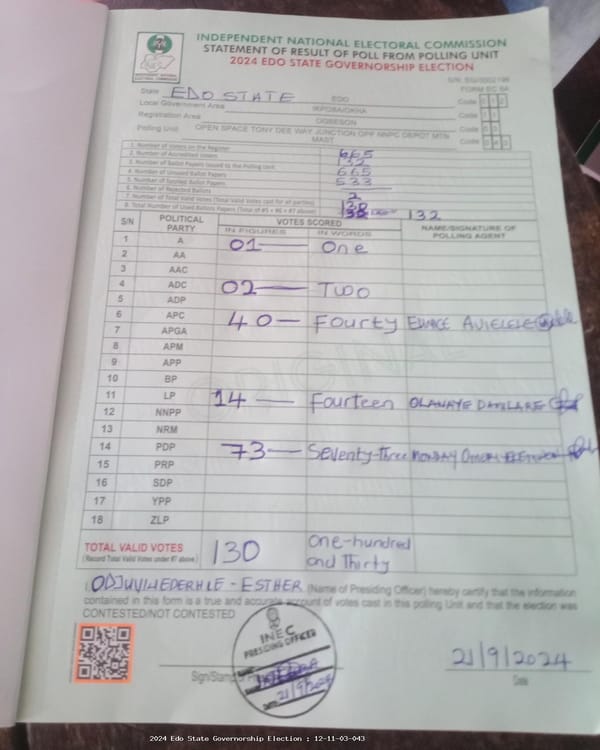 INDEPENDENT NATIONAL ELECTORAL COMMISSION
STATEMENT OF RESULT OF POLL FROM POLLING UNIT
2024 EDO STATE GOVERNORSHIP ELECTION
FORM EC 8A
State EDO STATE EDO Code
Local Government Area IKPOBA/OKHA Code
Registration Area OGBESON Code
Polling Unit OPEN SPACE TONY DEE WAY JUNCTION OPP NNPC DEPOT MTN MAST Code
1. Number of Voters on the Register 665
2. Number of Accredited Voters 132
3. Number of Ballot Papers Issued to the Polling Unit 665
4. Number of Unused Ballot Papers 533
5. Number of Spoiled Ballot Papers
6. Number of Rejected Ballots 2
7. Number of Total Valid Votes (Total Valid Votes cast for all parties) 130
8. Total Number of Used Ballot Papers (Total of #5 + #6 + #7 above) 132
S/N POLITICAL PARTY VOTES SCORED NAME/SIGNATURE OF POLLING AGENT
IN FIGURES IN WORDS
1 A 01 One
2 AA
3 AAC
4 ADC 02 TWO
5 ADP
6 APC 40 Fourty
7 APGA
8 APM
9 APP
10 BP
11 LP 14 Fourteen
12 NNPP
13 NRM
14 PDP 73 Seventy-three MONDAY
15 PRP
16 SDP
17 YPP
18 ZLP
TOTAL VALID VOTES 130 One-hundred and Thirty
(Record Total Valid Votes under #7 above)
ESTHER (Name of Presiding Officer) hereby certify that the information
contained in this form is a true and accurate account of votes cast in this polling Unit and that the election was
CONTESTED/NOT CONTESTED
INEC
PRESIDING OFFICER
21/9/2024
Sign/Stamp
21/9/2024
Date
2024 Edo State Governorship Election : 12-11-03-043